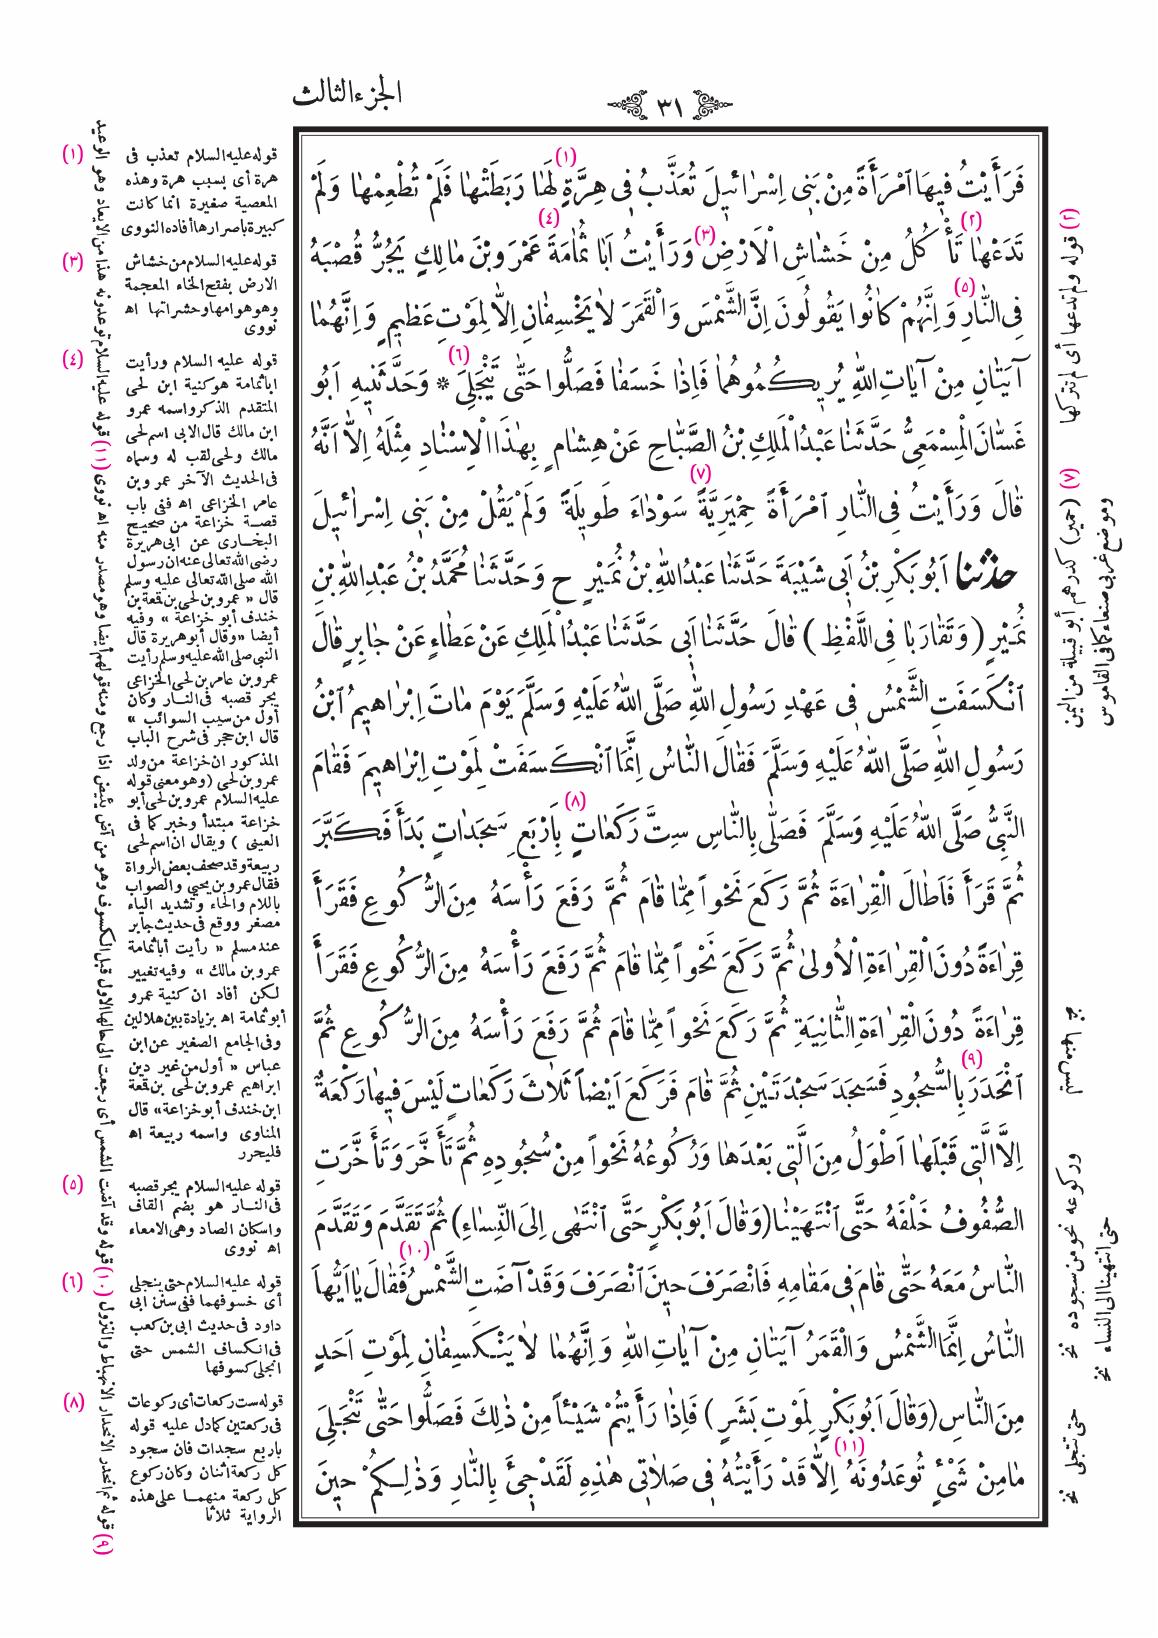 الجزء الثالث
٣١
فَرَأَيْتُ فِيهَا ٱمْرَأَةً مِنْ بَنِي اِسْرَائِيلَ تُعَذَّبُ فِي هِرَّةٍ (١) لَهَا رَبَطَتْهَا فَلَمْ تُطْعِمْهَا وَلَمْ
تَدَعْهَا (٢) تَأْكُلُ مِنْ خَشَاشِ الْاَرْضِ (٣) وَرَأَيْتُ اَبَا ثُمَامَةَ (٤) عَمْرَو بْنَ مَالِكٍ يَجُرُّ قُصْبَهُ
فِي النَّارِ (٥) وَاِنَّهُمْ كَانُوا يَقُولُونَ اِنَّ الشَّمْسَ وَالْقَمَرَ لَا يَخْسِفَانِ اِلَّا لِمَوْتِ عَظِيمٍ وَاِنَّهُمَا
آيَتَانِ مِنْ آيَاتِ اللهِ يُرِيكُمُوهُمَا فَاِذَا خَسَفَا فَصَلُّوا حَتَّى تَنْجَلِيَ (٦) * وَحَدَّثَنِيهِ اَبُو
غَسَّانَ الْمِسْمَعِيُّ حَدَّثَنَا عَبْدُ الْمَلِكِ بْنُ الصَّبَّاحِ عَنْ هِشَامٍ بِهٰذَا الْاِسْنَادِ مِثْلَهُ اِلَّا اَنَّهُ
قَالَ وَرَأَيْتُ فِي النَّارِ ٱمْرَأَةً حِمْيَرِيَّةً (٧) سَوْدَاءَ طَوِيلَةً وَلَمْ يَقُلْ مِنْ بَنِي اِسْرَائِيلَ
حدثنا اَبُو بَكْرِ بْنُ اَبِي شَيْبَةَ حَدَّثَنَا عَبْدُ اللهِ بْنُ نُمَيْرٍ ح وَحَدَّثَنَا مُحَمَّدُ بْنُ عَبْدِ اللهِ بْنِ
نُمَيْرٍ (وَتَقَارَبَا فِي اللَّفْظِ) قَالَ حَدَّثَنَا اَبِي حَدَّثَنَا عَبْدُ الْمَلِكِ عَنْ عَطَاءٍ عَنْ جَابِرٍ قَالَ
ٱنْكَسَفَتِ الشَّمْسُ فِي عَهْدِ رَسُولِ اللهِ صَلَّى اللهُ عَلَيْهِ وَسَلَّمَ يَوْمَ مَاتَ اِبْرَاهِيمُ ٱبْنُ
رَسُولِ اللهِ صَلَّى اللهُ عَلَيْهِ وَسَلَّمَ فَقَالَ النَّاسُ اِنَّمَا ٱنْكَسَفَتْ لِمَوْتِ اِبْرَاهِيمَ فَقَامَ
النَّبِيُّ صَلَّى اللهُ عَلَيْهِ وَسَلَّمَ فَصَلَّى بِالنَّاسِ سِتَّ رَكَعَاتٍ (٨) بِاَرْبَعِ سَجَدَاتٍ بَدَأَ فَكَبَّرَ
ثُمَّ قَرَأَ فَاَطَالَ الْقِرَاءَةَ ثُمَّ رَكَعَ نَحْواً مِمَّا قَامَ ثُمَّ رَفَعَ رَأْسَهُ مِنَ الرُّكُوعِ فَقَرَأَ
قِرَاءَةً دُونَ الْقِرَاءَةِ الْاُولَى ثُمَّ رَكَعَ نَحْواً مِمَّا قَامَ ثُمَّ رَفَعَ رَأْسَهُ مِنَ الرُّكُوعِ فَقَرَأَ
قِرَاءَةً دُونَ الْقِرَاءَةِ الثَّانِيَةِ ثُمَّ رَكَعَ نَحْواً مِمَّا قَامَ ثُمَّ رَفَعَ رَأْسَهُ مِنَ الرُّكُوعِ ثُمَّ
ٱنْحَدَرَ (٩) بِالسُّجُودِ فَسَجَدَ سَجْدَتَيْنِ ثُمَّ قَامَ فَرَكَعَ اَيْضاً ثَلَاثَ رَكَعَاتٍ لَيْسَ فِيهَا رَكْعَةٌ
اِلَّا الَّتِي قَبْلَهَا اَطْوَلُ مِنَ الَّتِي بَعْدَهَا وَرُكُوعُهُ نَحْواً مِنْ سُجُودِهِ ثُمَّ تَأَخَّرَ وَتَأَخَّرَتِ
الصُّفُوفُ خَلْفَهُ حَتَّى ٱنْتَهَيْنَا (وَقَالَ اَبُو بَكْرٍ حَتَّى ٱنْتَهَى اِلَى النِّسَاءِ) ثُمَّ تَقَدَّمَ وَتَقَدَّمَ
النَّاسُ مَعَهُ حَتَّى قَامَ فِي مَقَامِهِ فَانْصَرَفَ حِينَ ٱنْصَرَفَ وَقَدْ آضَتِ الشَّمْسُ (١٠) فَقَالَ يَا اَيُّهَا
النَّاسُ اِنَّمَا الشَّمْسُ وَالْقَمَرُ آيَتَانِ مِنْ آيَاتِ اللهِ وَاِنَّهُمَا لَا يَنْكَسِفَانِ لِمَوْتِ اَحَدٍ
مِنَ النَّاسِ (وَقَالَ اَبُو بَكْرٍ لِمَوْتِ بَشَرٍ) فَاِذَا رَأَيْتُمْ شَيْئاً مِنْ ذٰلِكَ فَصَلُّوا حَتَّى تَنْجَلِيَ
مَا مِنْ شَيْءٍ تُوعَدُونَهُ (١١) اِلَّا قَدْ رَأَيْتُهُ فِي صَلَاتِي هٰذِهِ لَقَدْ جِيءَ بِالنَّارِ وَذٰلِكُمْ حِينَ
(٢) قوله ولم تدعها أى لم تتركها
(٧) (حمير) كدرهم أبو قبيلة من اليمن
وموضع غربى صنعاء كما فى القاموس
وركوعه نحو من سجوده نخ
حتى انتهينا الى النساء نخ
حتى تنجلى نخ
(١) قوله عليه السلام تعذب فى
هرة أى بسبب هرة وهذه
المعصية صغيرة انما كانت
كبيرة باصرارها أفاده النووى
(٣) قوله عليه السلام من خشاش
الارض بفتح الخاء المعجمة
وهو هوامها وحشراتها اه
نووى
(٤) قوله عليه السلام ورأيت
أبا ثمامة هو كنية ابن لحى
المتقدم الذكر واسمه عمرو
ابن مالك قال الابى اسم لحى
مالك ولحى لقب له وسماه
فى الحديث الآخر عمرو بن
عامر الخزاعى اه ففى باب
قصة خزاعة من صحيح
البخارى عن ابى هريرة
رضى الله تعالى عنه ان رسول
الله صلى الله تعالى عليه وسلم
قال « عمرو بن لحى بن قمعة بن
خندف أبو خزاعة » وفيه
أيضا «وقال أبو هريرة قال
النبى صلى الله عليه وسلم رأيت
عمرو بن عامر بن لحى الخزاعى
يجر قصبه فى النار وكان
أول من سيب السوائب »
قال ابن حجر فى شرح الباب
المذكور ان خزاعة من ولد
عمرو بن لحى (وهو معنى قوله
عليه السلام عمرو بن لحى أبو
خزاعة مبتدأ وخبر كما فى
العينى ) ويقال ان اسم لحى
ربيعة وقد صحف بعض الرواة
فقال عمرو بن يحيى والصواب
باللام والحاء وتشديد الياء
مصغر ووقع فى حديث جابر
عند مسلم « رأيت أبا ثمامة
عمرو بن مالك » وفيه تغيير
لكن أفاد ان كنية عمرو
أبو ثمامة اه بزيادة بين هلالين
وفى الجامع الصغير عن ابن
عباس « أول من غير دين
ابراهيم عمرو بن لحى بن قمعة
ابن خندف أبو خزاعة» قال
المناوى واسمه ربيعة اه
فليحرر
(٥) قوله عليه السلام يجر قصبه
فى النار هو بضم القاف
واسكان الصاد وهى الامعاء
اه نووى
(٦) قوله عليه السلام حتى ينجلى
أى خسوفهما ففى سنن ابى
داود فى حديث ابى بن كعب
فى انكساف الشمس حتى
انجلى كسوفها
(٨) قوله ست ركعات أى ركوعات
فى ركعتين كما دل عليه قوله
باربع سجدات فان سجود
كل ركعة اثنان وكان ركوع
كل ركعة منهما على هذه
الرواية ثلاثا
(٩) قوله ثم انحدر الانحدار الانهباط والنزول (١٠) قوله وقد آضت الشمس أى رجعت الى حالها الاول قبل الكسوف وهو من آض يئيض اذا رجع ومنه قولهم أيضا وهو مصدر منه اه نووى (١١) قوله عليه السلام توعدونه هذا من الايعاد وهو الوعيد